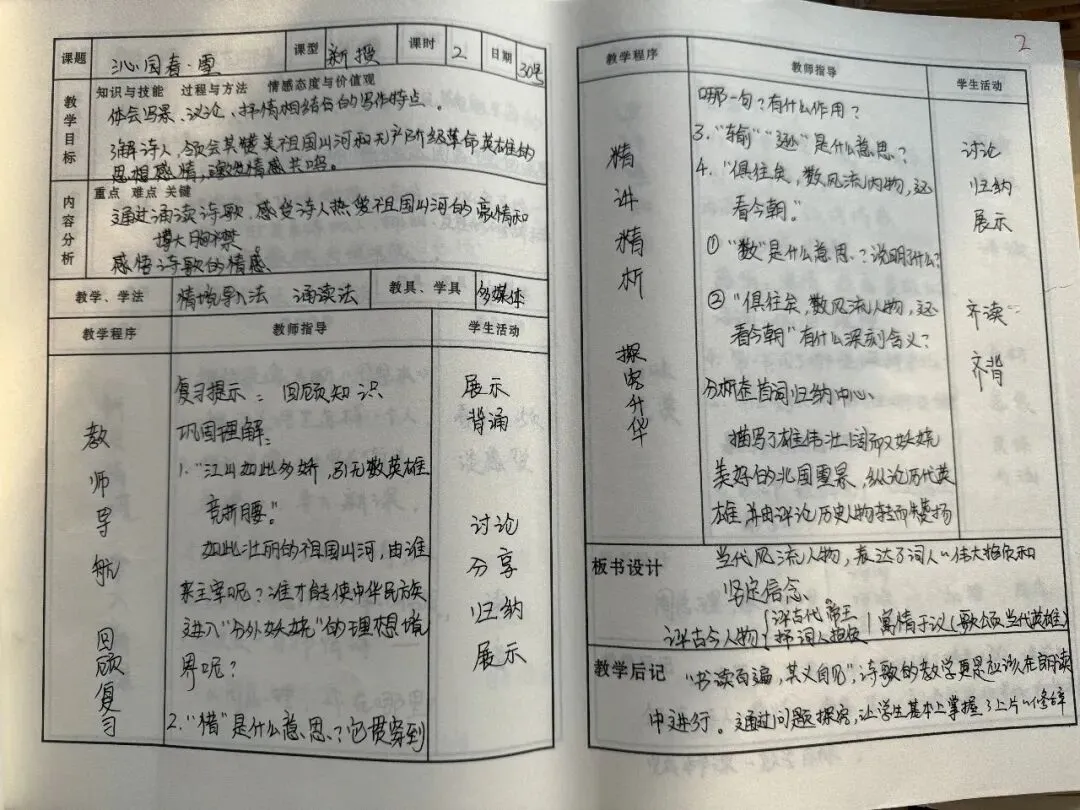 课题 沁园春·雪 课型 新授 课时 2 日期 30号
教学目标
知识与技能 过程与方法 情感态度与价值观
体会写景、议论、抒情相结合的写作特点。
了解诗人,领会其赞美祖国山河和无产阶级革命英雄的
思想感情,激发情感共鸣。
内容分析
重点 难点 关键
通过诵读诗歌,感受诗人热爱祖国山河的豪情和
博大胸襟
感悟诗歌的情感
教学、学法 情境导入法 诵读法 教具、学具 多媒体
教学程序 教师指导 学生活动
教师导航 回顾复习
复习提示:回顾知识
巩固理解:
1.“江山如此多娇,引无数英雄
竞折腰。”
如此壮丽的祖国山河,由谁
来主宰呢?谁才能使中华民族
进入“分外妖娆”的理想境
界呢?
2.“惜”是什么意思?它贯穿到
展示
背诵
讨论
分享
归纳
展示
2
教学程序 教师指导 学生活动
精讲精析 探究升华
哪一句?有什么作用?
3.“输”“逊”是什么意思?
4.“俱往矣,数风流人物,还
看今朝。”
①“数”是什么意思?说明什么?
②“俱往矣,数风流人物,还
看今朝”有什么深刻含义?
分析在首词归纳中心、
描写了雄伟壮阔而又妖娆
美好的北国雪景,纵论历代英
雄,并由评论历史人物转而赞扬
讨论
归纳
展示
齐读
齐背
当代风流人物,表达了词人伟大抱负和
坚定信念。
板书设计
评古今人物{评古代帝王 抒词人抱负}寓情于议(歌颂当代英雄)
教学后记 “书读百遍,其义自见”,诗歌的教学更是应该在朗读
中进行。通过问题探究,让学生基本上掌握了上片的修辞